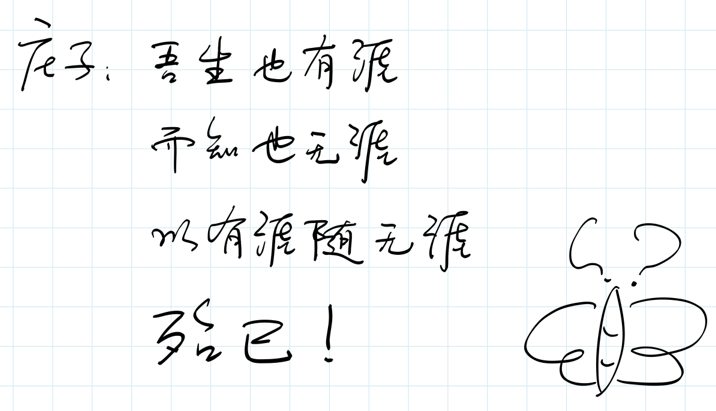 庄子：吾生也有涯
而知也无涯
以有涯随无涯
殆已！